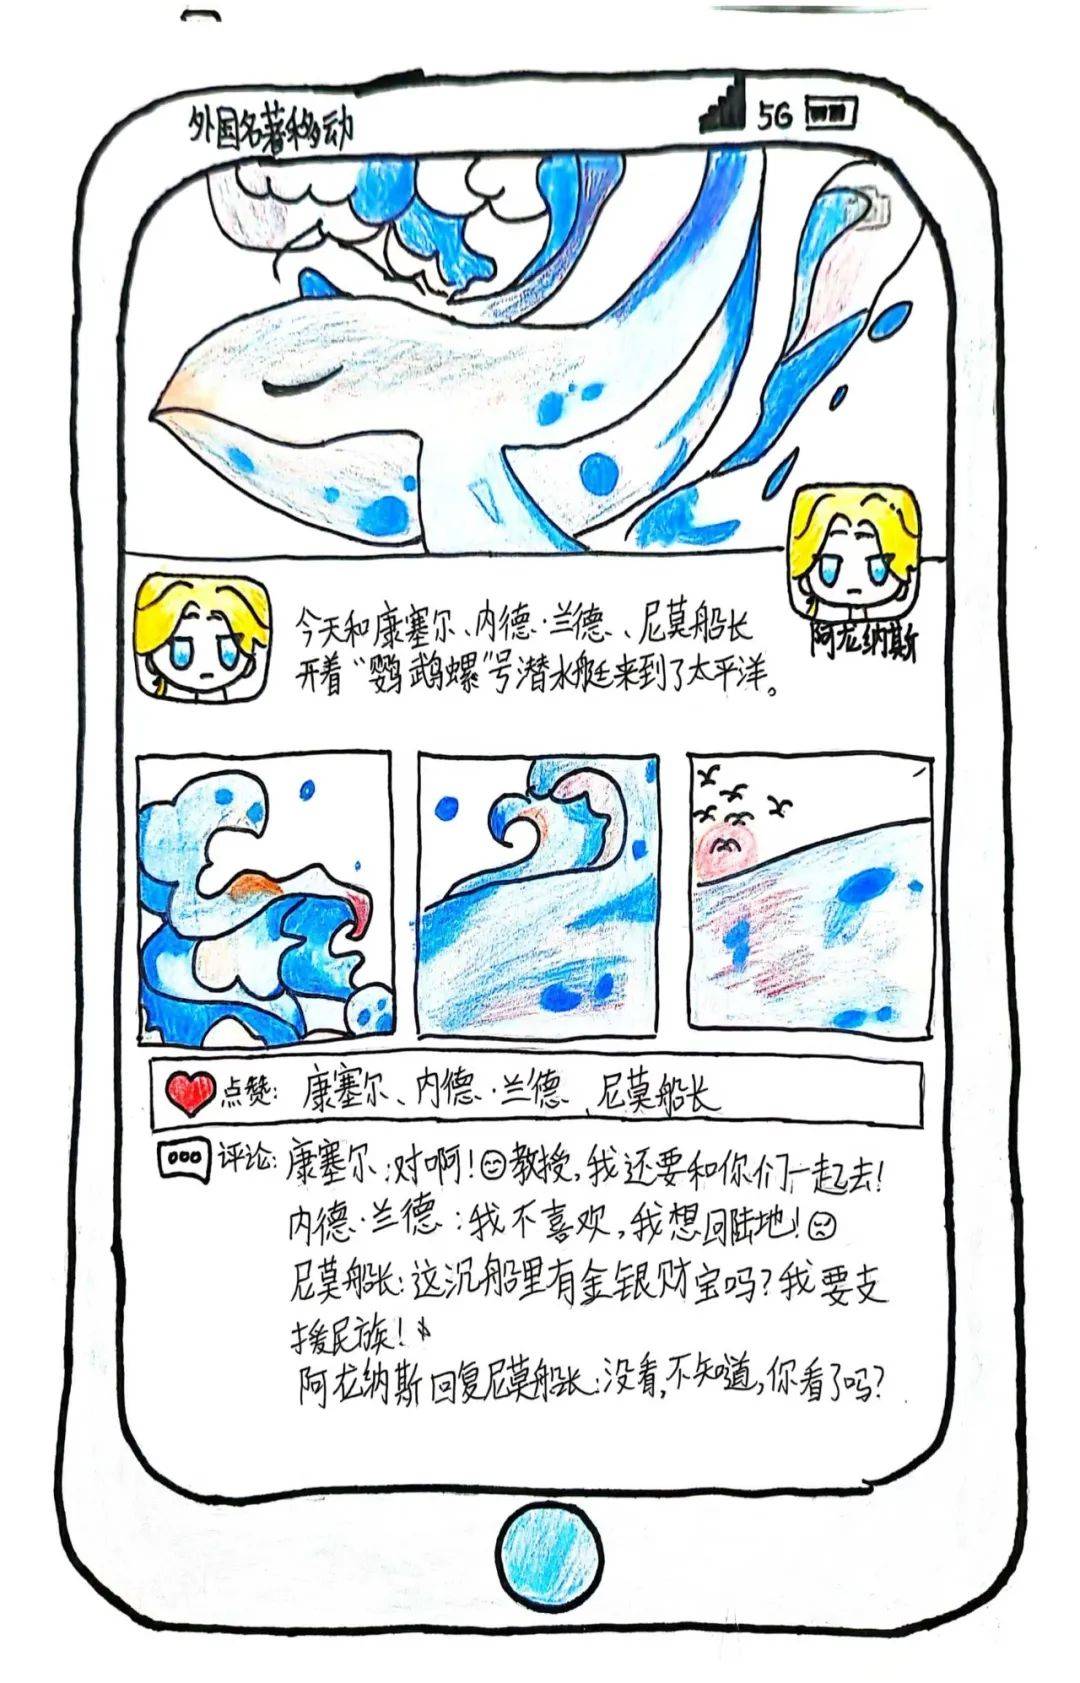 外国名著移动
5G
阿龙纳斯
今天和康塞尔、内德·兰德、尼莫船长
开着“鹦鹉螺”号潜水艇来到了太平洋。
点赞：康塞尔、内德·兰德、尼莫船长
评论：康塞尔：对啊！教授，我还要和你们一起去！
内德·兰德：我不喜欢，我想回陆地！
尼莫船长：这沉船里有金银财宝吗？我要支
援民族！
阿龙纳斯回复尼莫船长：没看，不知道，你看了吗？